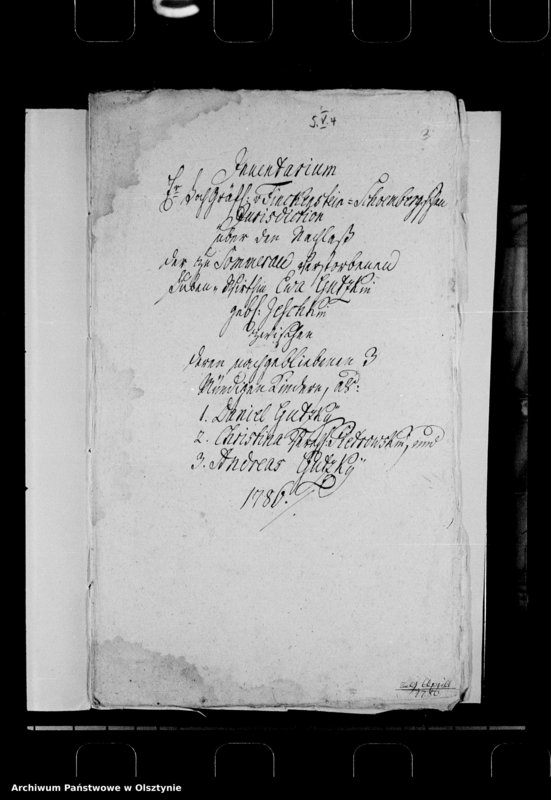 5.V.4
3
Inventarium
Er. HochGräfl: v Finckenstein-Schoenbergschen
Jurisdiction
über den Nachlaß
der zu Sommerau verstorbenen
Huben-Wirthin Ewa Gutzkin
geb: Jeschkin
zwischen
deren nachgebliebenen 3
Mündigen Kindern, als:
1. Daniel Gutzky
2. Christina Pietrowskin, und
3. Andreas Gutzky
1786.
April
1786.
Archiwum Państwowe w Olsztynie